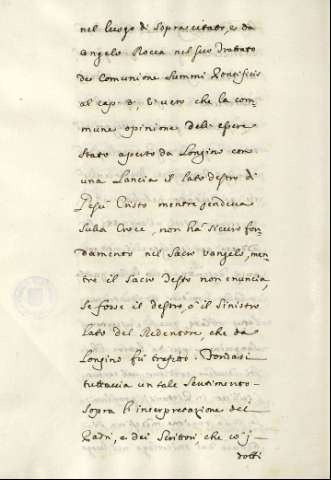 nel luogo di Soprascitato, e da
Angelo Rocca nel suo Trattato
de Comunione Summi Pontificis
al cap. 3, È vero che la com=
mune opinione dell' essere
stato aperto da Longino con
una Lancia il lato destro di
Gesù Cristo mentre pendeva
sulla Croce, non ha sicuro fon=
damento nel Sacro vangelo, men=
tre il Sacro Testo non enuncia,
se fosse il destro, o il Sinistro
lato del Redentore, che da
Longino fù trafitto. Fondasi
tuttavia un tale Sentimento
sopra l'interpretazione del
Padri, e dei Scrittori, che co i
dotti